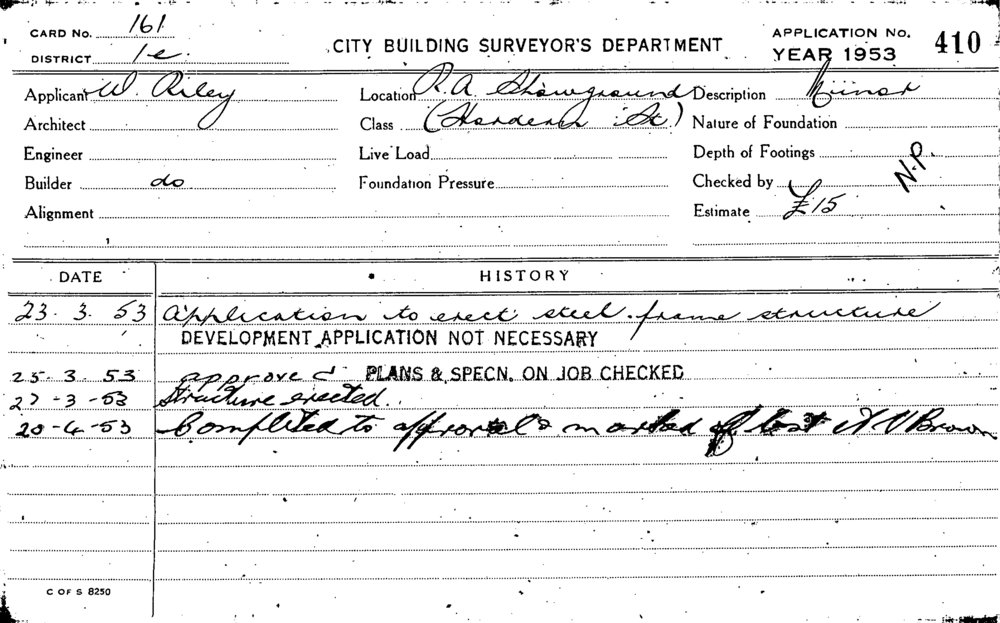 CARD No. 161
DISTRICT 1e.
CITY BUILDING SURVEYOR'S DEPARTMENT
APPLICATION No.
YEAR 1953
410
Applicant W. Riley
Location R.A. Showground
Description Minor
Architect
Class (Hardern St.)
Nature of Foundation
Engineer
Live Load
Depth of Footings
Builder do
Foundation Pressure
Checked by
N.P.
Alignment
Estimate £15
DATE
HISTORY
23. 3. 53 Application to erect steel frame structure
DEVELOPMENT APPLICATION NOT NECESSARY
25. 3. 53 approved PLANS & SPECN. ON JOB CHECKED
27-3-53 Structure erected.
20-4-53 Completed to approval & marked off list Brown
C OF S 8250